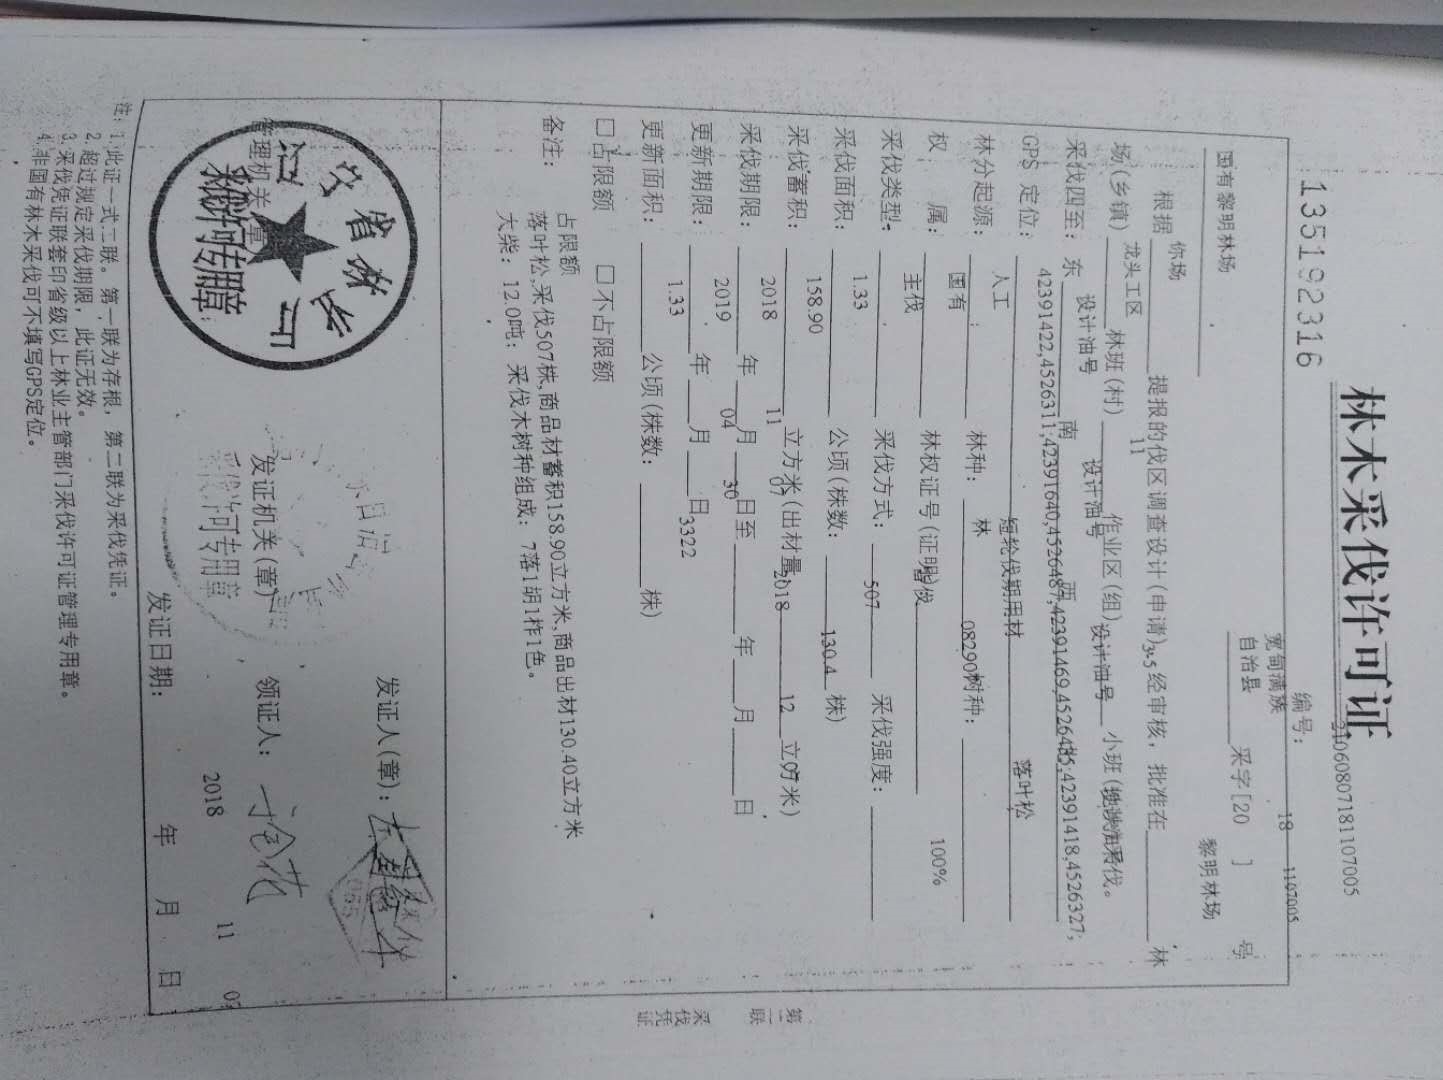 林木采伐许可证
210608071811107005
编号：
135192316
宽甸满族
自治县 采字[20 18 ] 1107005 号
国有黎明林场
黎明林场
根据 你场 提报的伐区调查设计(申请)，经审核，批准在 林
场(乡镇) 龙头工区 林班(村) 11 作业区(组) 设计油号 小班(地块)采伐。
采伐四至：东 设计油号 南 设计油号 西 设计油号
GPS 定位： 42391422,4526311;42391640,4526487;42391469,4526485;42391418,4526327;
林分起源： 人工 林种： 短轮伐期用材林 树种： 落叶松
权 属： 国有 林权证号(证明)： 08290
采伐类型： 主伐 采伐方式： 皆伐 采伐强度： 100%
采伐面积： 1.33 公顷(株数： 507 株)
采伐蓄积： 158.90 立方米(出材量： 130.4 立方米)
采伐期限： 2018 年 11 月 07 日至 2018 年 12 月 07 日
更新期限： 2019 年 04 月 30 日
更新面积： 1.33 公顷(株数： 3322 株)
□占限额 □不占限额
备注： 占限额
落叶松,采伐507株,商品材蓄积158.90立方米,商品出材130.40立方米
大柴：12.0吨；采伐木树种组成：7落1胡1柞1色。
发证人(章)：
管理机关章
辽宁省林业厅
采伐许可专用章
发证机关(章)
采伐许可专用章
领证人：
发证日期： 2018 年 11 月 07 日
第二联
采伐凭证
注：1.此证一式二联。第一联为存根，第二联为采伐凭证。
2.超过规定采伐期限，此证无效。
3.采伐凭证联套印省级以上林业主管部门采伐许可证管理专用章。
4.非国有林木采伐可不填写GPS定位。